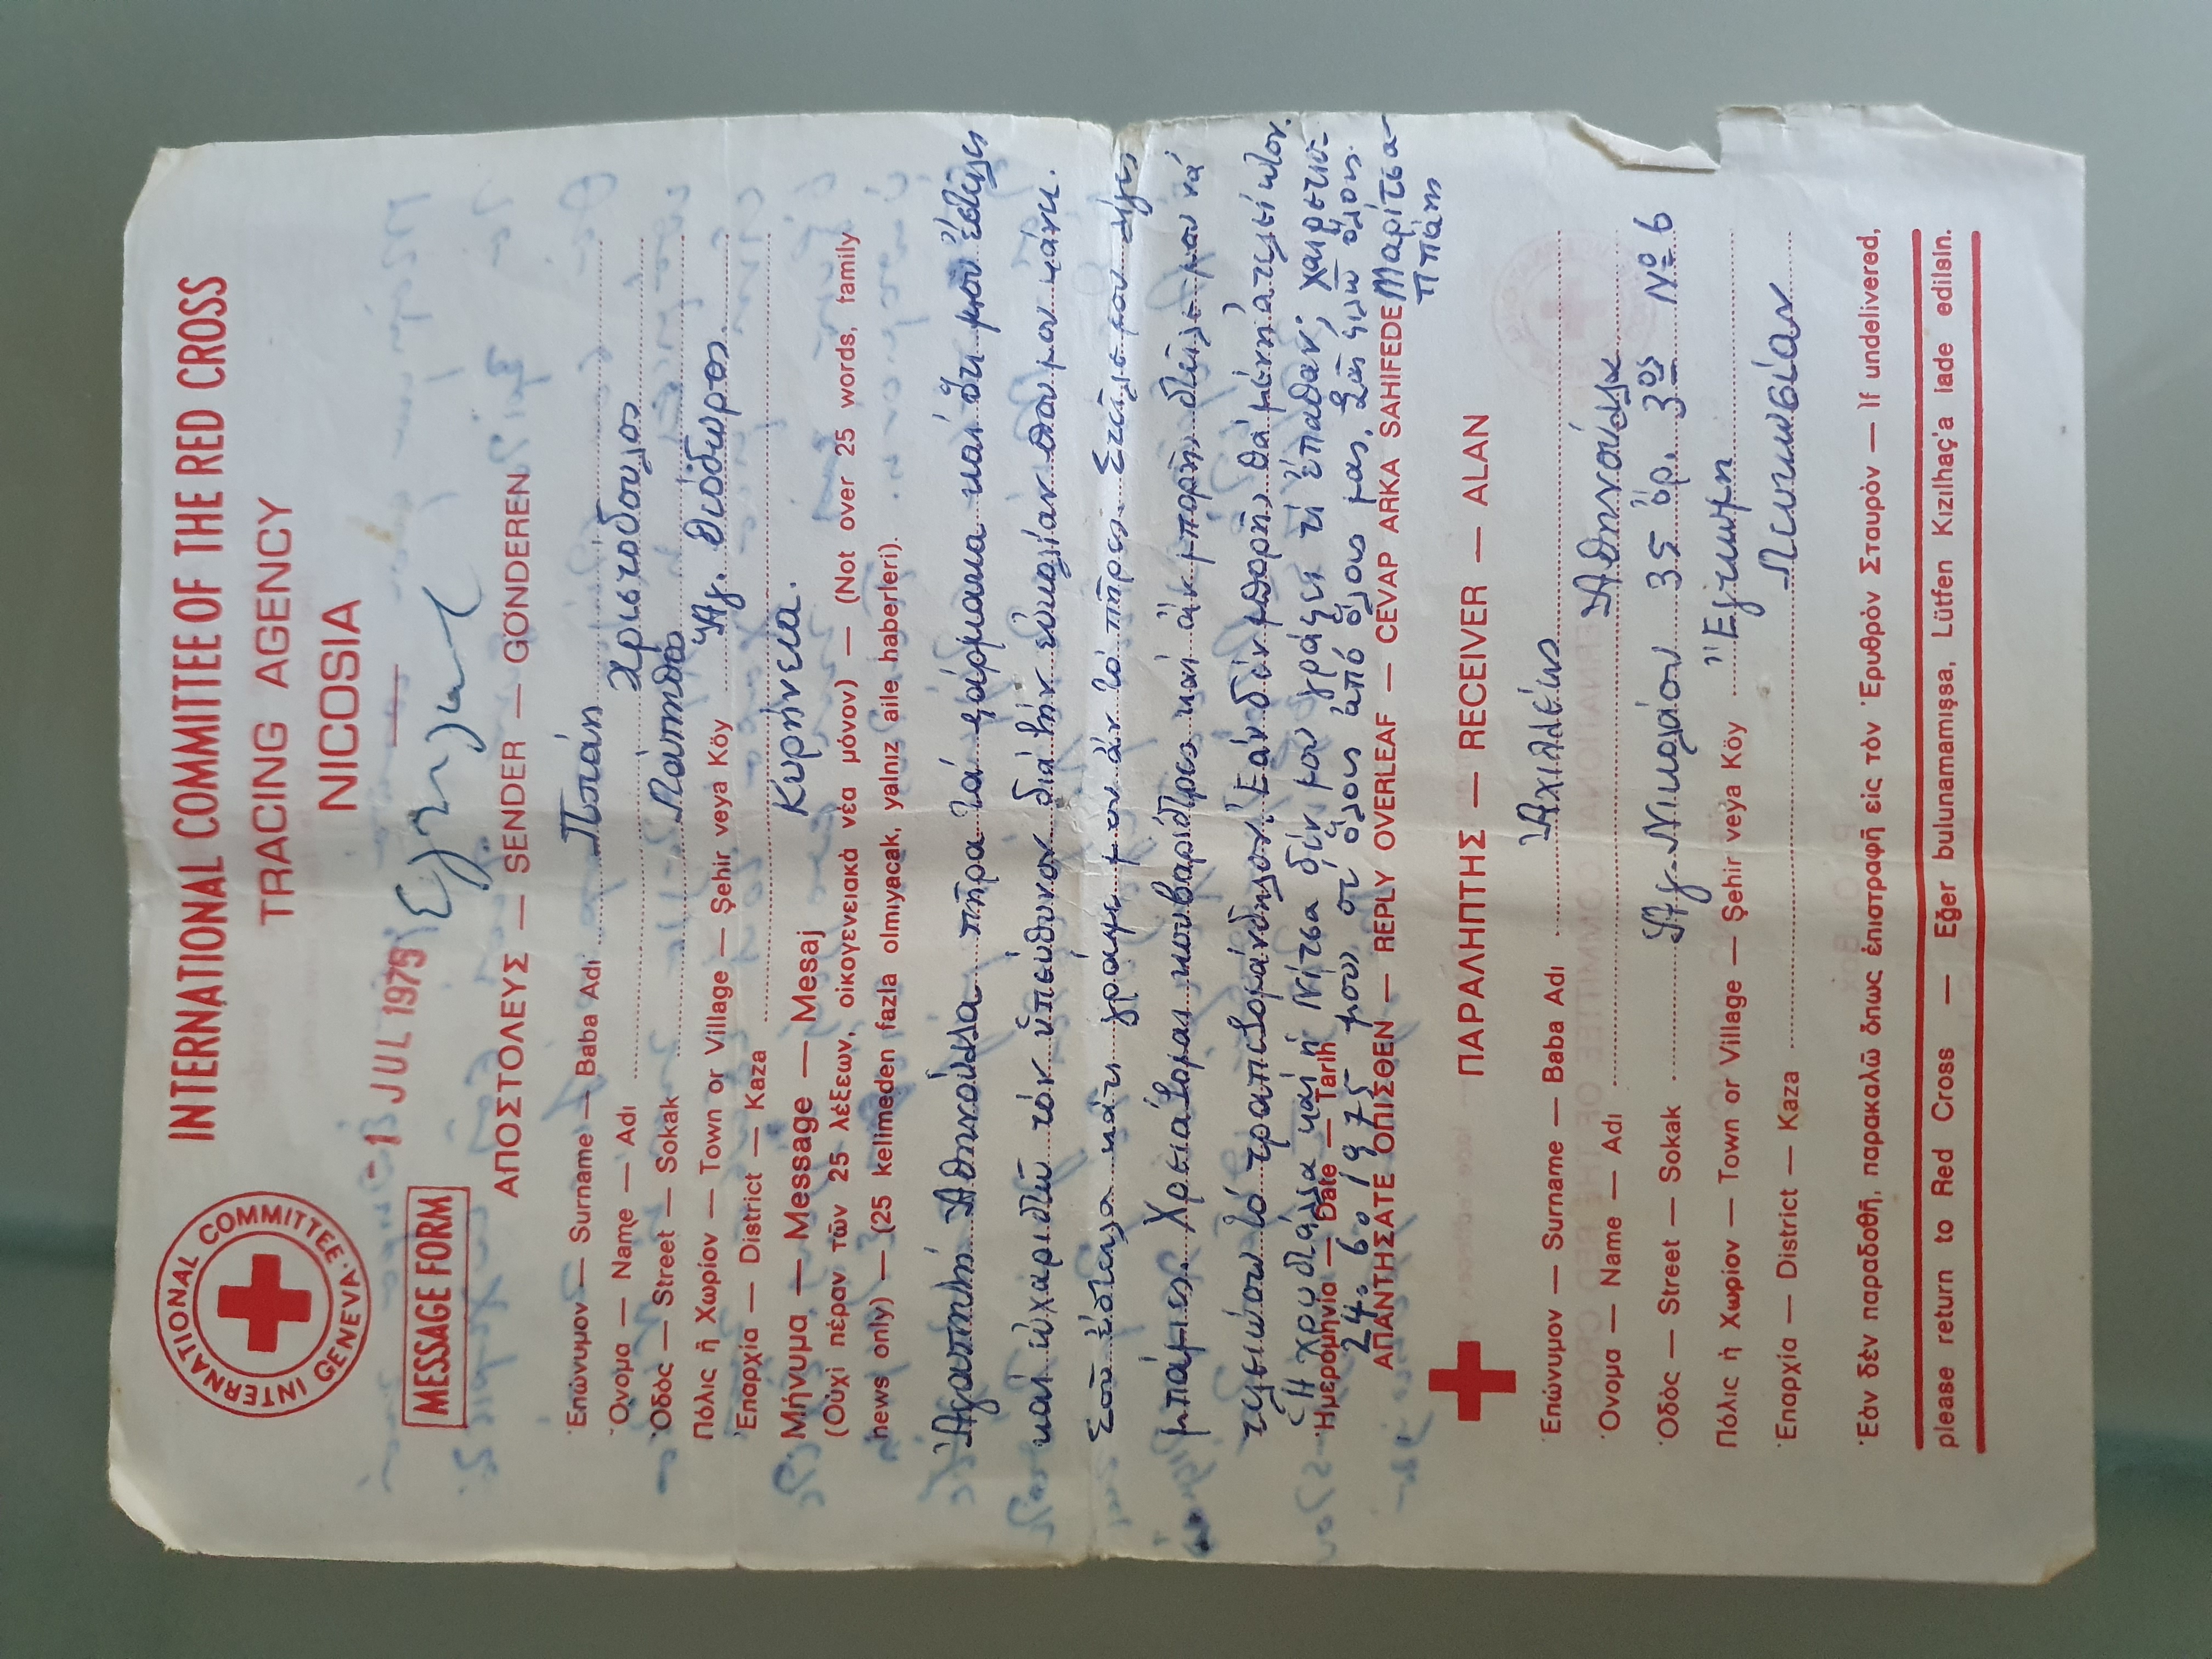 INTERNATIONAL COMMITTEE OF THE RED CROSS
TRACING AGENCY
NICOSIA
INTERNATIONAL COMMITTEE · GENEVA ·
-1 JUL 1975
MESSAGE FORM
ΑΠΟΣΤΟΛΕΥΣ — SENDER — GÖNDEREN
Ἐπώνυμον — Surname — Baba Adi
Ὄνομα — Name — Adı Χριστόδουλος
Ὁδὸς — Street — Sokak Λάπηθος
Πόλις ἢ Χωρίον — Town or Village — Şehir veya Köy Ἅγ. Θεόδωρος.
Ἐπαρχία — District — Kaza Κυρήνεια.
Μήνυμα — Message — Mesaj
(Οὐχὶ πέραν τῶν 25 λέξεων, οἰκογενειακὰ νέα μόνον) — (Not over 25 words, family
news only) — (25 kelimeden fazla olmıyacak, yalnız aile haberleri).
Ἀγαπητή Ἀθηνούλλα πῆρα τά φάρμακα καί ὅτι μοῦ ἔστειλες
καί εὐχαριστῶ τόν ὑπεύθυνον διά τήν εὐκολίαν που μου κάνει.
Σοῦ ἔστειλα κάτι γράψε μου ἄν τό πῆρες. Στείλε μου λίγες
μπάμιες. Χρειάζομαι κουβαρίστρες καί ἄν μπορῆς στεῖλε μου νά
τελειώσω τό τραπεζομάντηλον. Ἐάν δέν μπορῆς θά μείνη ἀτελείωτον.
Ἡ Χρυστάλλα καί ἡ Νίτσα δέν μου γράφει τί ἔπαθαν; χαιρετισ-
μούς σέ ὅλους ἀπό ὅλους μας, Σᾶς φιλῶ ὅλους.
Ἡμερομηνία — Date — Tarih
24. 6. 1975
Μαρίτσα
Ππάη
ΑΠΑΝΤΗΣΑΤΕ ΟΠΙΣΘΕΝ — REPLY OVERLEAF — CEVAP ARKA SAHIFEDE
ΠΑΡΑΛΗΠΤΗΣ — RECEIVER — ALAN
Ἐπώνυμον — Surname — Baba Adı Ἀχιλλέως
Ὄνομα — Name — Adı Ἀθηνούλλα
Ὁδὸς — Street — Sokak Ἁγ. Νικολάου 35 ὁρ. 3ος Νο 6
Πόλις ἢ Χωρίον — Town or Village — Şehir veya Köy Ἔγκωμη
Ἐπαρχία — District — Kaza Λευκωσίαν
Ἐὰν δὲν παραδοθῆ, παρακαλῶ ὅπως ἐπιστραφῆ εἰς τὸν Ἐρυθρὸν Σταυρὸν — If undelivered,
please return to Red Cross — Eğer bulunamamışsa, Lütfen Kızılhaç'a iade edilsin.